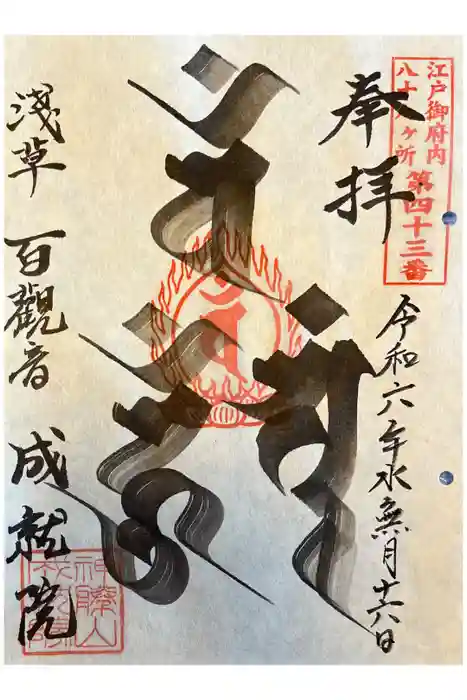 江戸御府内
八十八ヶ所
第四十三番
奉拝
令和六年水無月十六日
淺草 百觀音 成就院